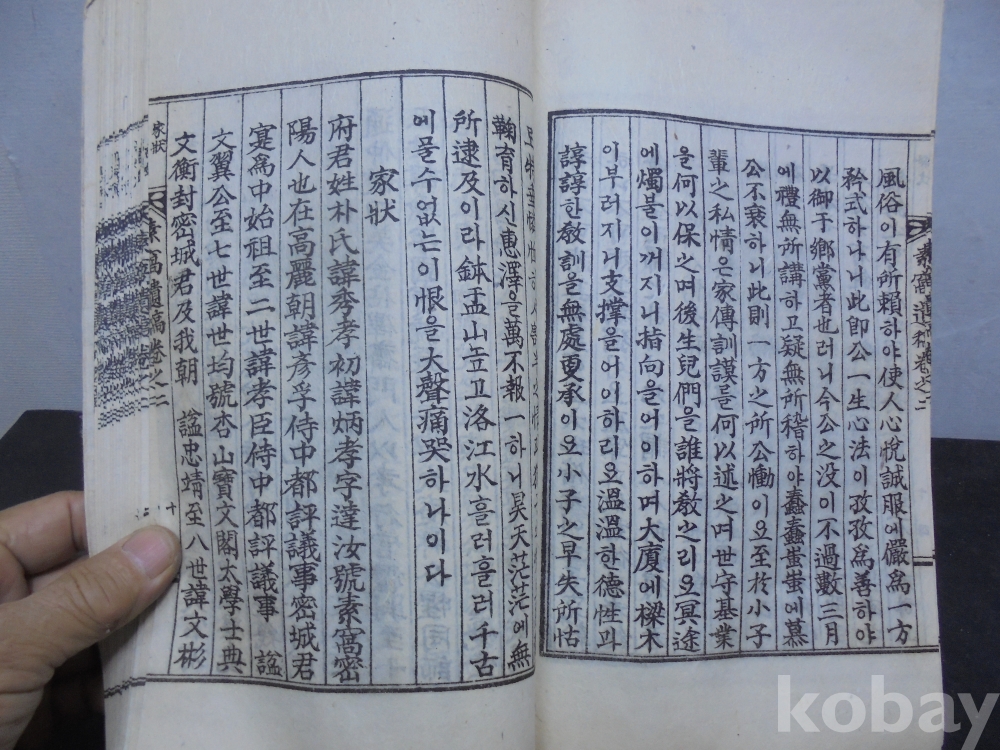 風俗이有所賴하야使人心悅誠服에儼爲一方
矜式하나니此即公一生心法이孜孜爲善하야
以御于鄉黨者也러니今公之没이不過數三月
에禮無所講하고疑無所稽하야蠢蠢蚩蚩에慕
公不衰하니此則一方之所公慟이오至於小子
輩之私情은家傳訓謨를何以述之며世守基業
을何以保之며後生兒們을誰將敎之리오冥途
에燭불이꺼지니指向을어이하며大厦에樑木
이부러지니支撑을어이하리오溫溫한德性과
諄諄한敎訓을無處更承이오小子之早失所怙
鞠育하신惠澤을萬不報一하니昊天茫茫에無
所逮及이라鉢盂山높고洛江水흘러흘러千古
에풀수없는이恨을大聲痛哭하나이다
家狀
府君姓朴氏諱秀孝初諱炳孝字達汝號素窩密
陽人也在高麗朝諱彦孚侍中都評議事密城君
寔爲中始祖至二世諱孝臣侍中都評議事 諡
文翼公至七世諱世均號杏山寶文閣太學士典
文衡封密城君及我朝 諡忠靖至八世諱文彬
家狀
素窩遺稿卷之二
素窩遺稿卷之二
kobay